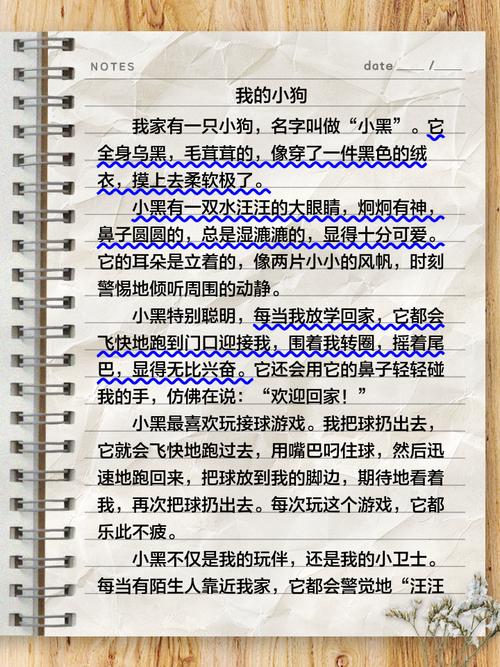 NOTES
date____ /____
我的小狗
我家有一只小狗，名字叫做“小黑”。它
全身乌黑，毛茸茸的，像穿了一件黑色的绒
衣，摸上去柔软极了。
小黑有一双水汪汪的大眼睛，炯炯有神，
鼻子圆圆的，总是湿漉漉的，显得十分可爱。
它的耳朵是立着的，像两片小小的风帆，时刻
警惕地倾听周围的动静。
小黑特别聪明，每当我放学回家，它都会
飞快地跑到门口迎接我，围着我转圈，摇着尾
巴，显得无比兴奋。它还会用它的鼻子轻轻碰
我的手，仿佛在说：“欢迎回家！”
小黑最喜欢玩接球游戏。我把球扔出去，
它就会飞快地跑过去，用嘴巴叼住球，然后迅
速地跑回来，把球放到我的脚边，期待地看着
我，再次把球扔出去。每次玩这个游戏，它都
乐此不疲。
小黑不仅是我的玩伴，还是我的小卫士。
每当有陌生人靠近我家，它都会警觉地“汪汪